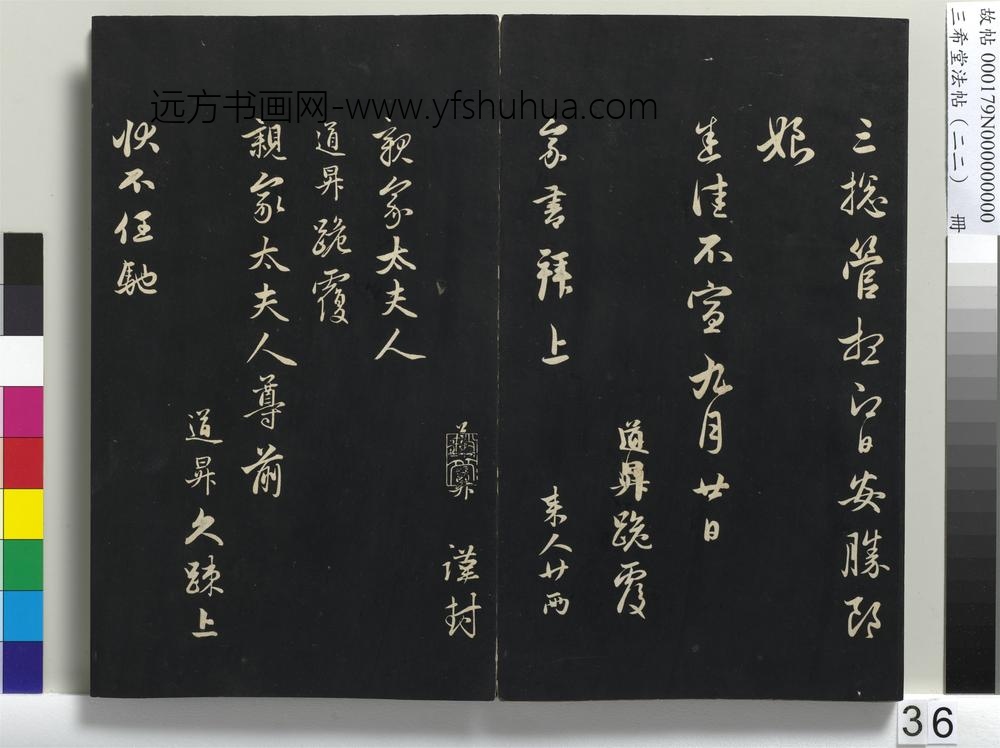 三總管想即日安勝郎
娘
佳不宣九月廿日
道昇跪覆
家書拜上
來人廿兩
謹封
親家太夫人
道昇跪覆
親家太夫人尊前
道昇久疎上
狀不任馳
远方书画网-www.yfshuhua.com
故帖 000179N000000000
三希堂法帖（二二） 冊
36